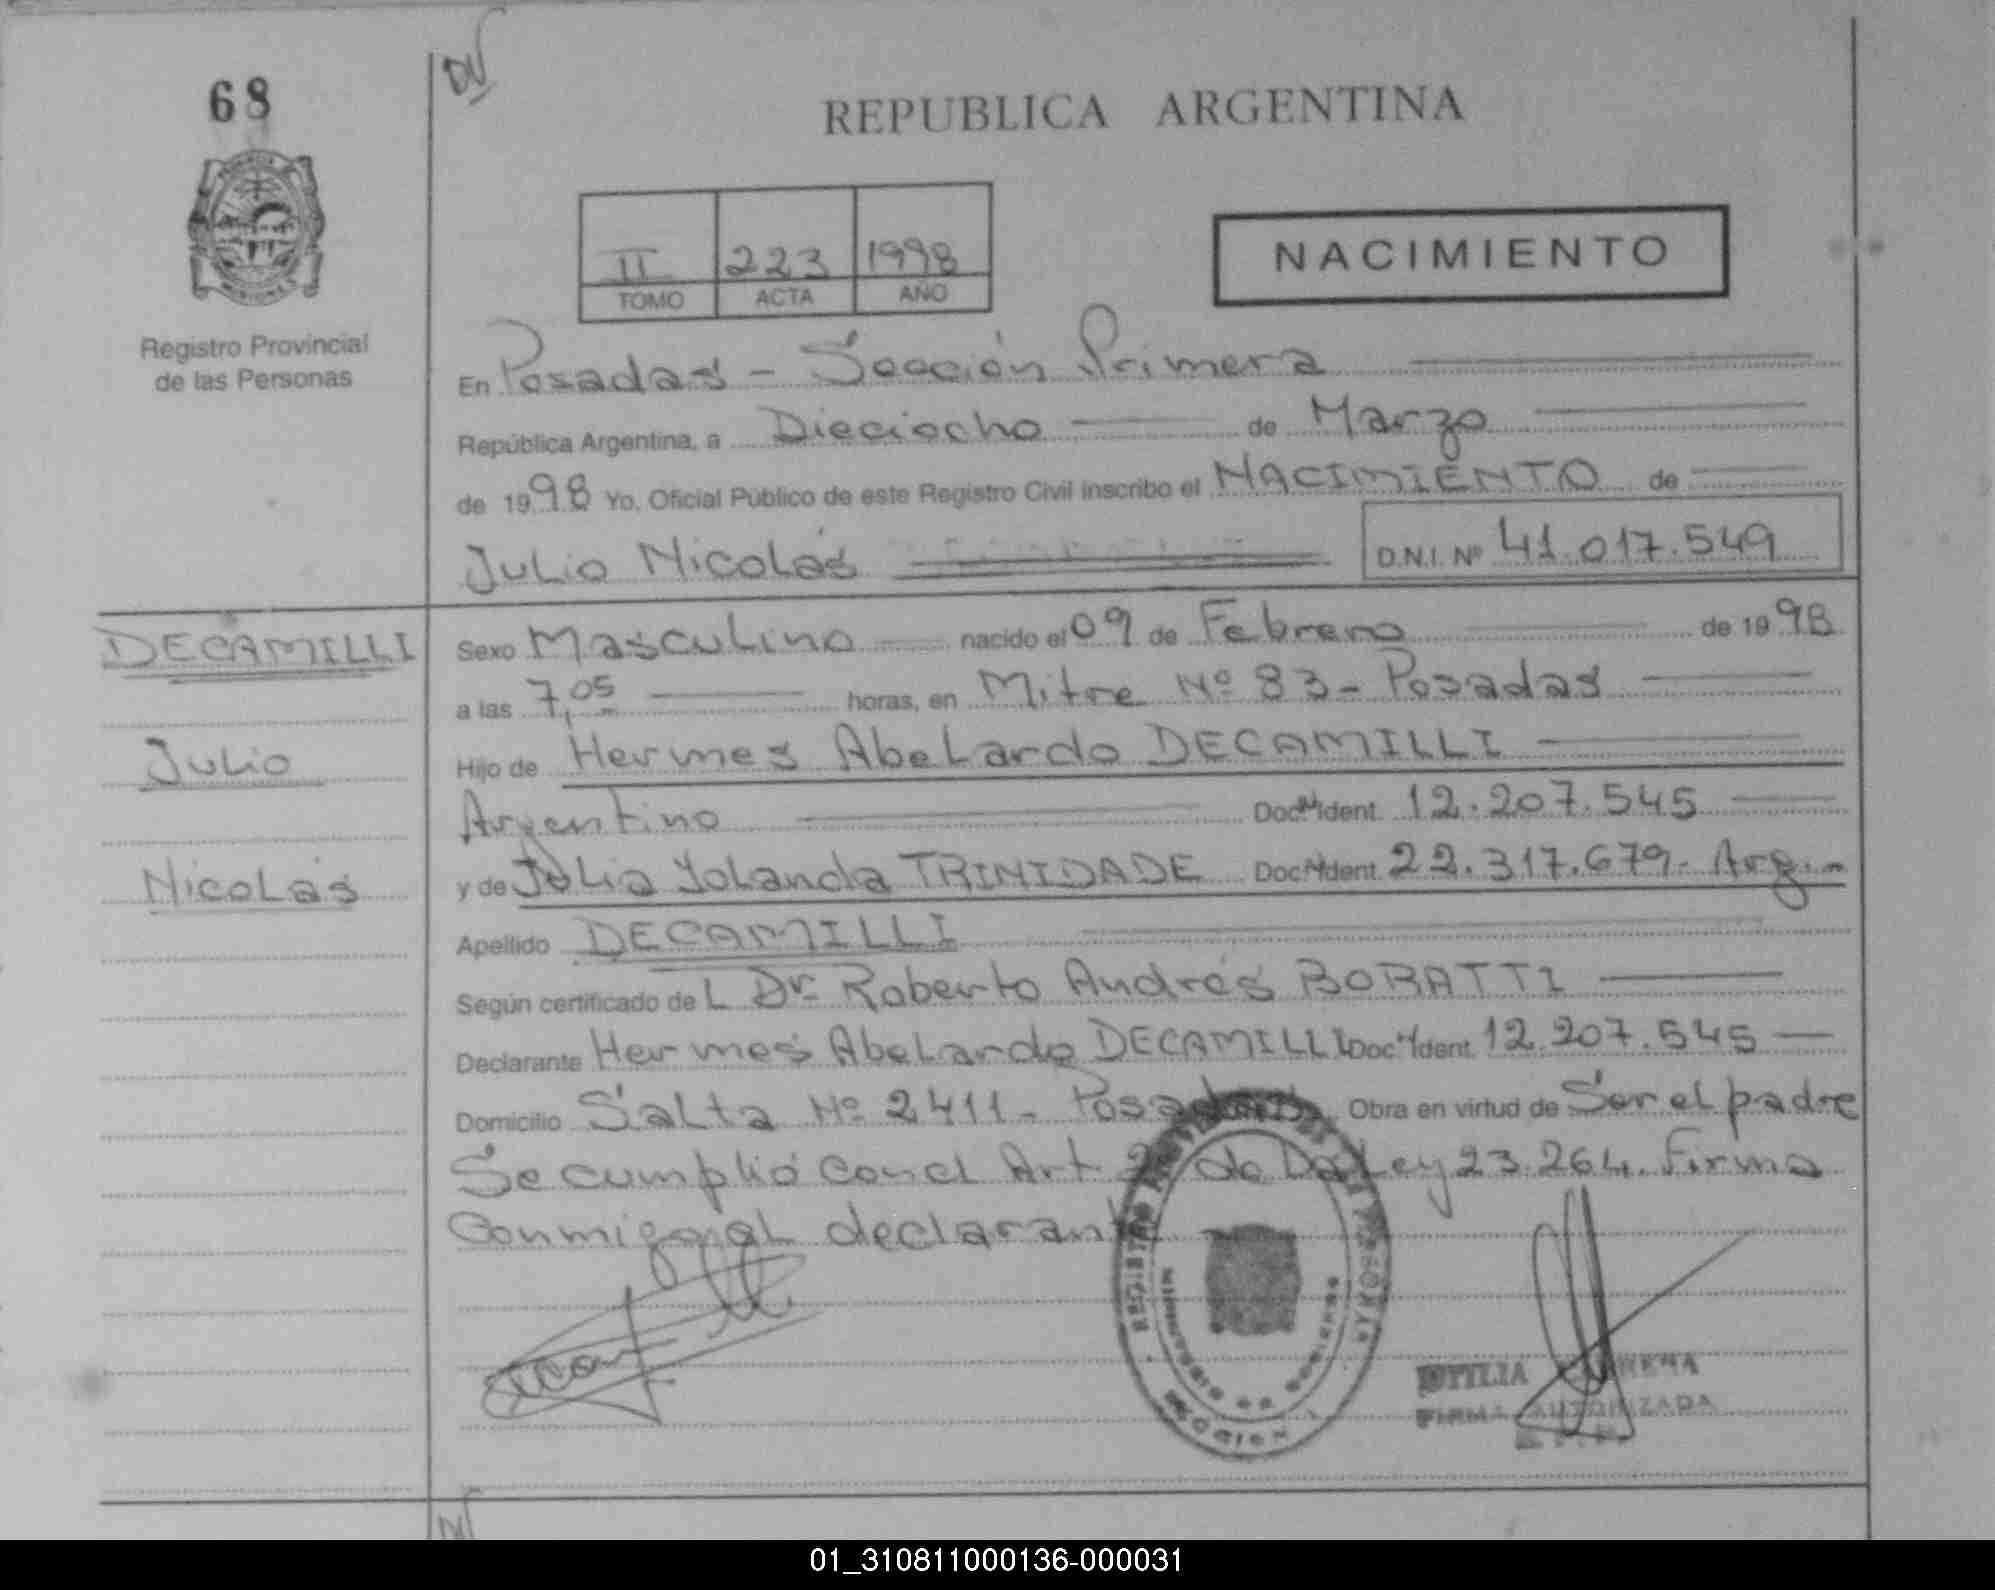 68
REPUBLICA ARGENTINA
II 223 1998
TOMO ACTA AÑO
NACIMIENTO
Registro Provincial
de las Personas
En Posadas - Sección Primera
República Argentina, a Dieciocho de Marzo
de 1998 Yo, Oficial Público de este Registro Civil inscribo el NACIMIENTO de
Julio Nicolás D.N.I. Nº 41.017.549
DECAMILLI
Julio
Nicolás
Sexo Masculino nacido el 09 de Febrero de 1998
a las 7,05 horas, en Mitre Nº 83 - Posadas
Hijo de Hermes Abelardo DECAMILLI
Argentino Doc. Ident. 12.207.545
y de Julia Yolanda TRINIDADE Doc. Ident. 22.317.679 - Arg.-
Apellido DECAMILLI
Según certificado del Dr. Roberto Andrés BORATTI
Declarante Hermes Abelardo DECAMILLI Doc. Ident. 12.207.545 -
Domicilio Salta Nº 2411 - Posadas Obra en virtud de Ser el padre
Se cumplió con el Art. de La Ley 23.264. Firma
Conmigo el declarante
REGISTRO DE LAS PERSONAS
MINISTERIO DE GOBIERNO
MISIONES
FIRMA AUTORIZADA
01_310811000136-000031